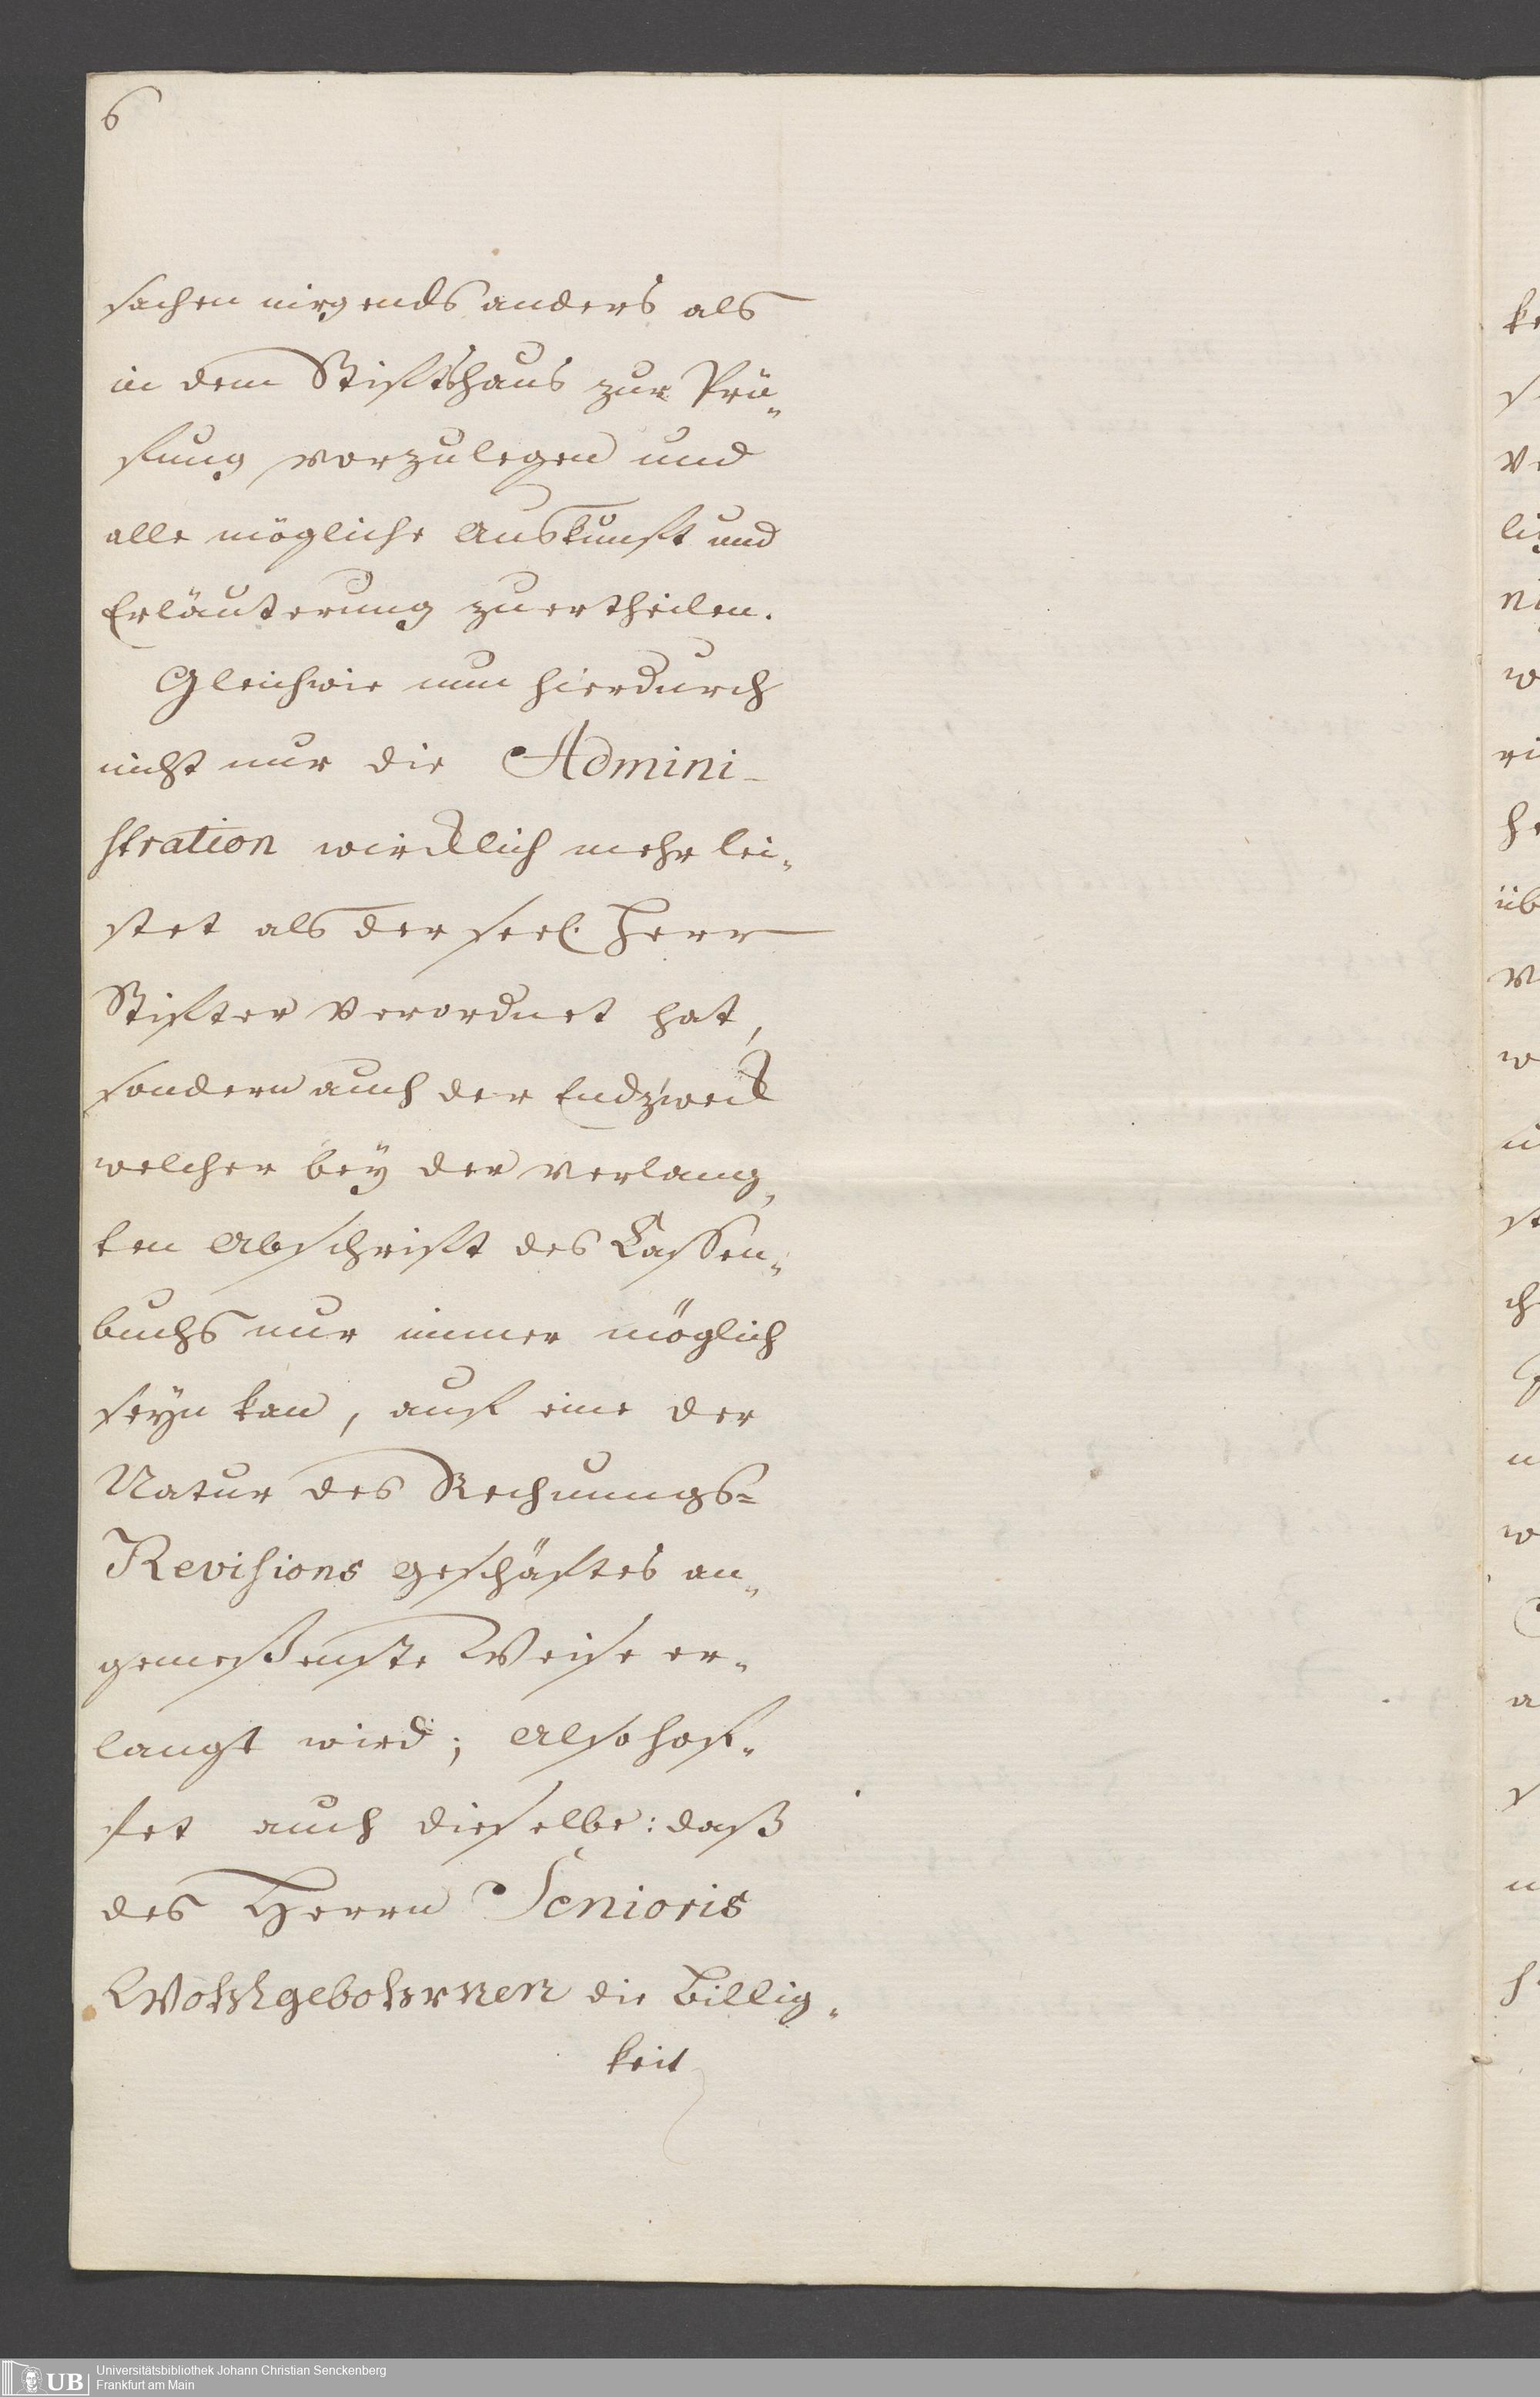 6
sachen nirgends anders als
in dem Stiftshaus zur Prü„
fung vorzulegen und
alle mögliche Auskunft und
Erläuterung zu ertheilen.
Gleichwie nun hierdurch
nicht nur die Admini-
stration wircklich mehr lei„
stet als der seel. Herr
Stifter verordnet hat,
sondern auch der Endzweck
welcher bey der verlang„
ten Abschrift des Cassen„
buchs nur immer möglich
seyn kan, auf eine der
Natur des Rechnungs=
Revisions geschäftes an„
gemeßenste Weise er„
langt wird; Also hof„
fet auch dieselbe: daß
des Herrn Senioris
Wohlgebohrnen die Billig„
keit
UB
Universitätsbibliothek Johann Christian Senckenberg
Frankfurt am Main